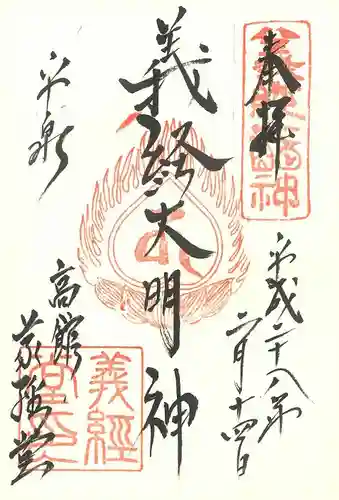 奉拝
平成二十八年
六月十四日
義経大明神
平泉
高館
義経堂
義経
堂印